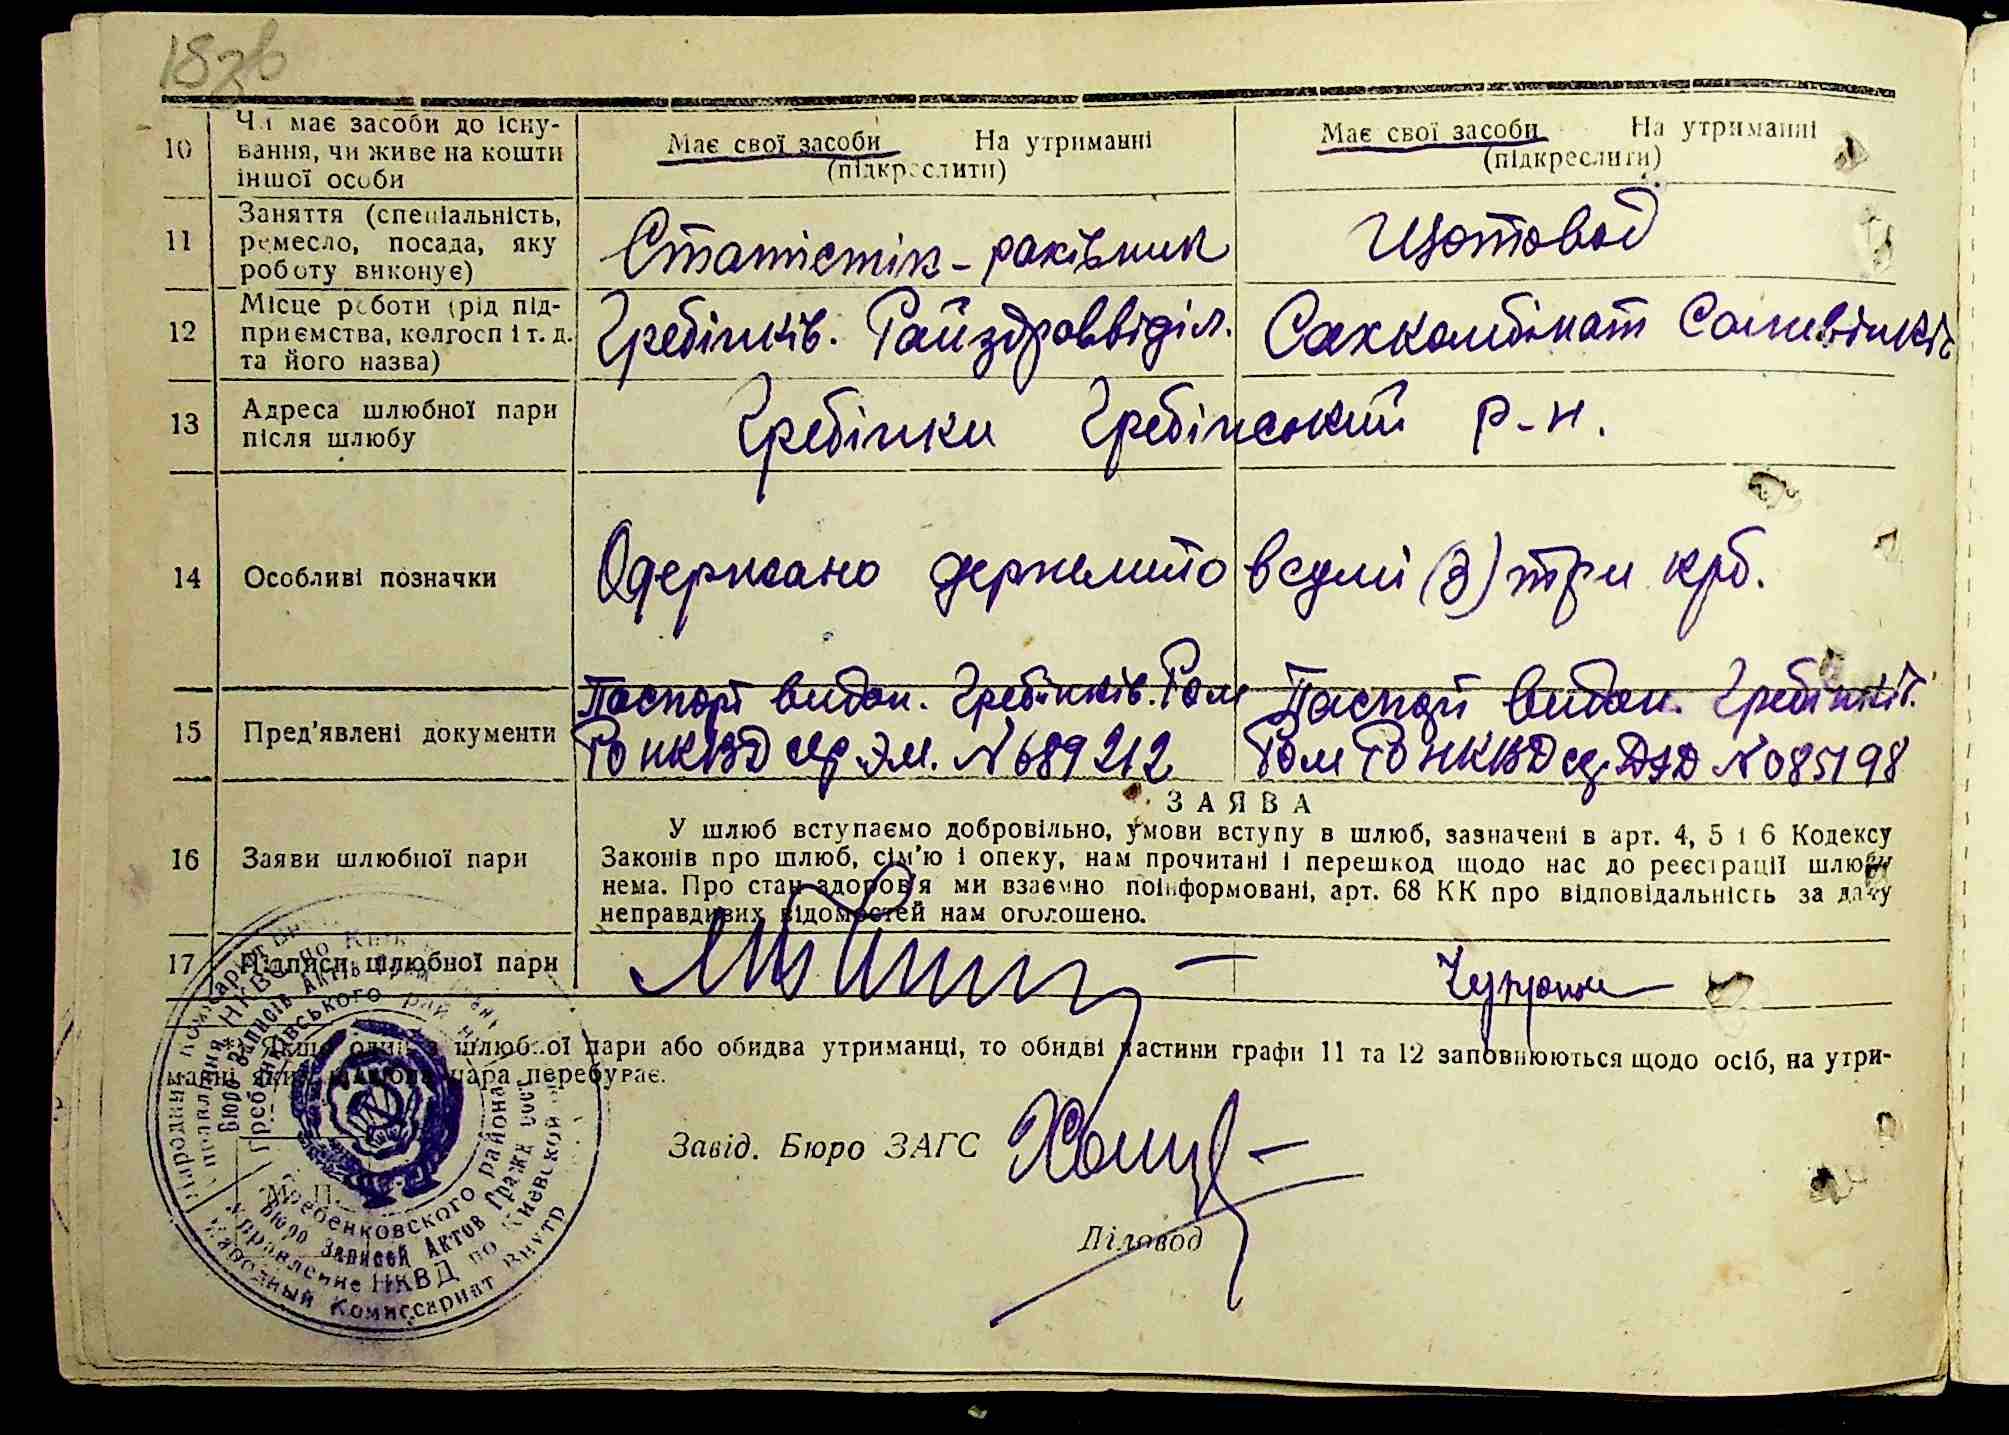 10 Чи має засоби до існу-
вання, чи живе на кошти
іншої особи
Має свої засоби На утриманні
(підкреслити)
Має свої засоби На утриманні
(підкреслити)
11 Заняття (спеціальність,
ремесло, посада, яку
роботу виконує)
Статістік - рахівник
Щотовод
12 Місце роботи (рід під-
приємства, колгосп і т. д.
та його назва)
Гребінків. Райздороввіділ.
Сахкомбінат
13 Адреса шлюбної пари
після шлюбу
Гребінки Гребінський р-н.
14 Особливі позначки
Одержано держмито в сумі (3) три крб.
15 Пред'явлені документи
Паспорт видан. Гребінків. Рам
РО НКВД N 689212
Паспорт видан. Гребінків.
Рам РО НКВД N 085198
З А Я В А
16 Заяви шлюбної пари
У шлюб вступаємо добровільно, умови вступу в шлюб, зазначені в арт. 4, 5 і 6 Кодексу
Законів про шлюб, сім'ю і опеку, нам прочитані і перешкод щодо нас до реєстрації шлюбу
нема. Про стан здоров'я ми взаємно поінформовані, арт. 68 КК про відповідальність за дачу
неправдивих відомостей нам оголошено.
17 Підписи шлюбної пари
*) Якщо один з шлюбної пари або обидва утриманці, то обидві частини графи 11 та 12 заповнюються щодо осіб, на утри-
манні яких шлюбна пара перебуває.
Завід. Бюро ЗАГС
М. П.
Діловод
Гребенковского района
Бюро Записей Актов Гражд. сост.
Управление НКВД по Киевской
Народный Комиссариат Внутр